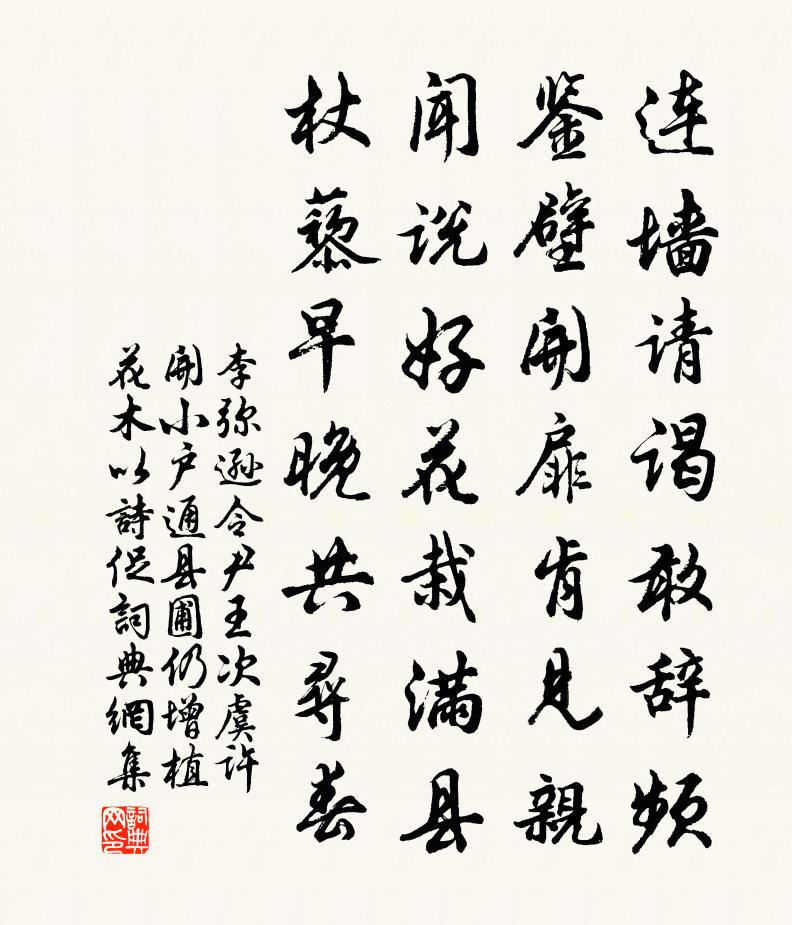 连墙请谒敢辞频
鉴壁開扉肯见親
闻说好花栽满县
杖藜早晚共尋春
李弥遜令尹王次虞许
開小户通县圃仍增植
花木以詩促詞典網集
詞典網印